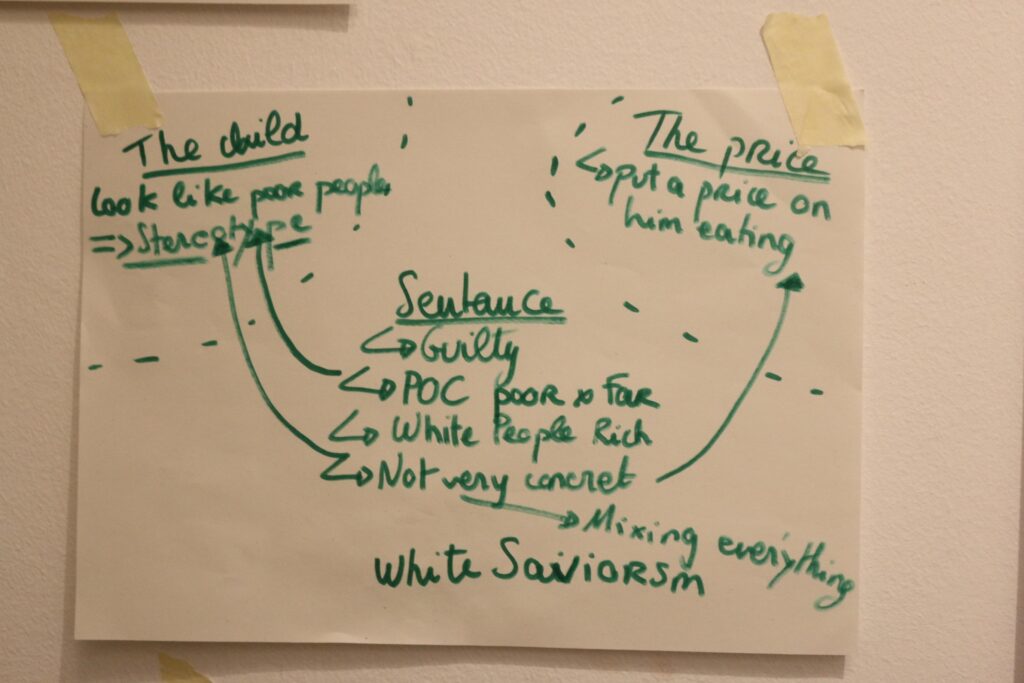 The child
look like poor people
=> Stereotype
The price
↳ put a price on
him eating
Sentance
↳ Guilty
↳ POC poor & Far
↳ White People Rich
↳ Not very concret
→ Mixing everything
White Saviorsm